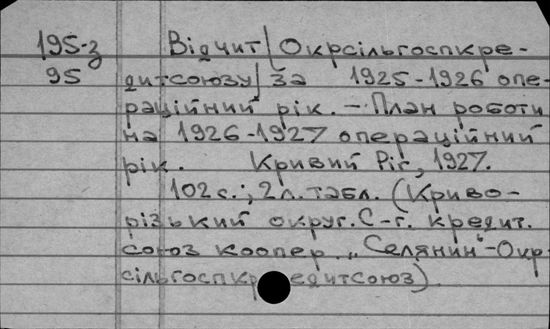 195-з Відчит/Окрсільгоспкре-
95 дитсоюзу/за 1925-1926 опе-
раційний рік. – План роботи
на 1926-1927 операційний
рік. Кривий Ріг, 1927.
102 с.; 2 л. табл. (Криво-
різький округ. С-г. кредит.
союз коопер. „Селянин"-Окр-
сільгоспкредитсоюз).